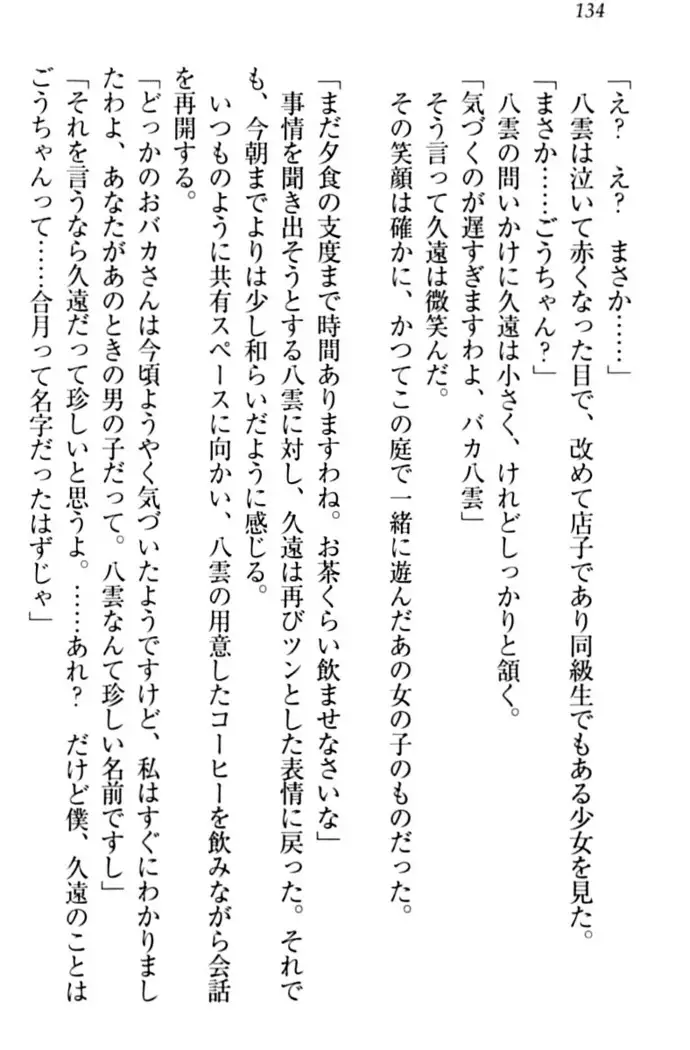 134
「え？　え？　まさか……」
　八雲は泣いて赤くなった目で、改めて店子であり同級生でもある少女を見た。
「まさか……ごうちゃん？」
　八雲の問いかけに久遠は小さく、けれどしっかりと頷く。
「気づくのが遅すぎますわよ、バカ八雲」
　そう言って久遠は微笑んだ。
　その笑顔は確かに、かつてこの庭で一緒に遊んだあの女の子のものだった。
「まだ夕食の支度まで時間ありますわね。お茶くらい飲ませなさいな」
　事情を聞き出そうとする八雲に対し、久遠は再びツンとした表情に戻った。それで
も、今朝までよりは少し和らいだように感じる。
　いつものように共有スペースに向かい、八雲の用意したコーヒーを飲みながら会話
を再開する。
「どっかのおバカさんは今頃ようやく気づいたようですけど、私はすぐにわかりまし
たわよ、あなたがあのときの男の子だって。八雲なんて珍しい名前ですし」
「それを言うなら久遠だって珍しいと思うよ。……あれ？　だけど僕、久遠のことは
ごうちゃんって……合月って名字だったはずじゃ」